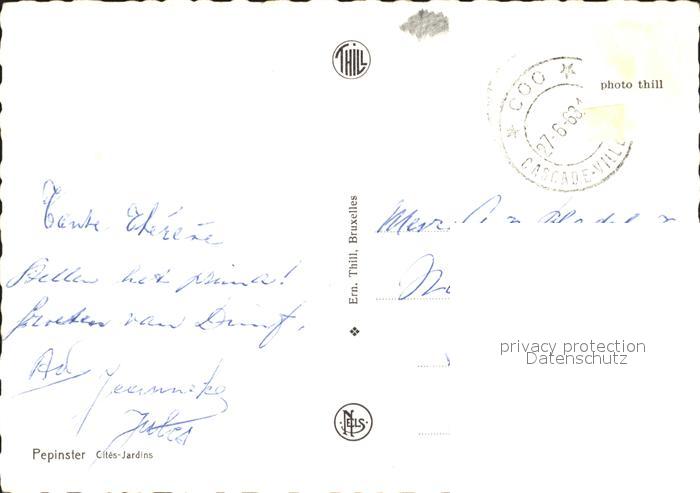 THILL
photo thill
COO
27-6-63
CASCADE-VILLE
Tante Thérèse
Stellen het prima!
Groeten van
Ad
Jeanneke
Jules
Pepinster Cités-Jardins
Ern. Thill, Bruxelles
NELS
Mevr.
privacy protection
Datenschutz